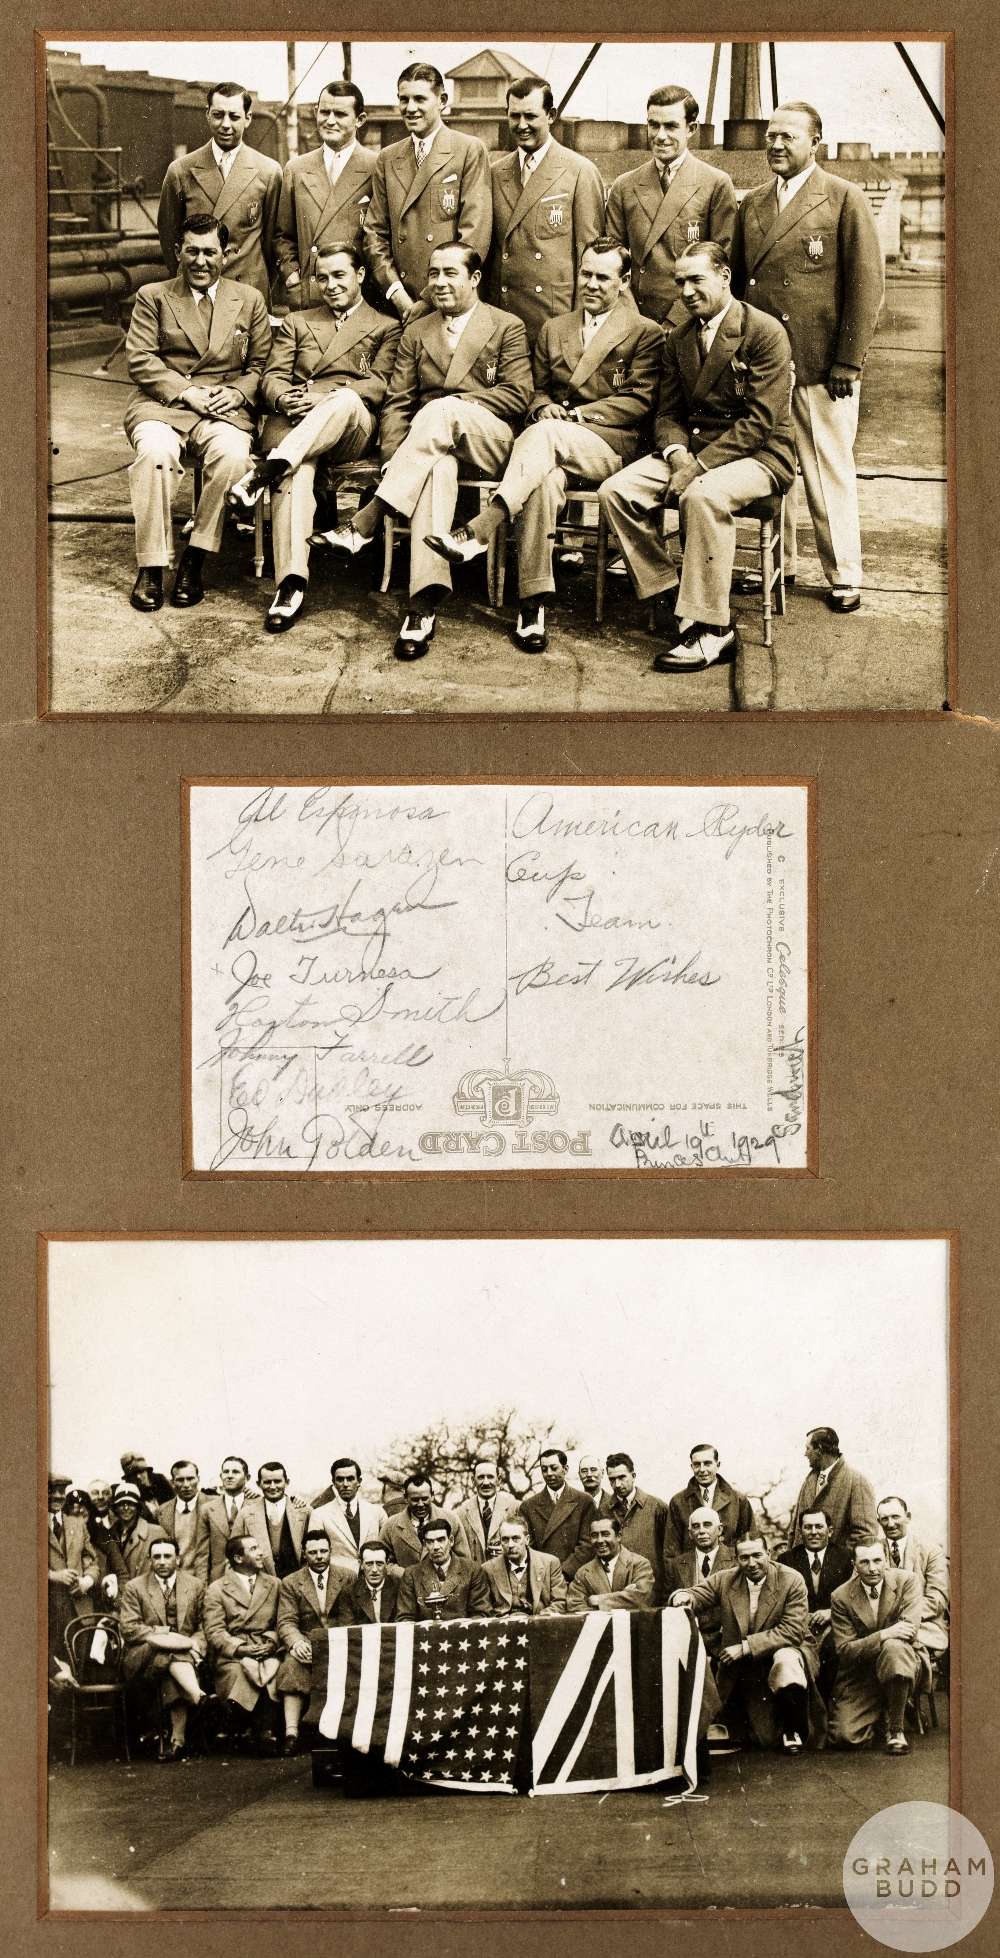 Al Espinosa
Gene Sarazen
Walter Hagen
x Joe Turnesa
Horton Smith
Johnny Farrell
Ed Dudley
John Golden
American Ryder
Cup
Team.
Best Wishes
April 19th 1929
Princes Club
Sandwich
C EXCLUSIVE Celesque SERIES
PUBLISHED BY THE PHOTOCHROM CO LTD LONDON AND TUNBRIDGE WELLS
THIS SPACE FOR COMMUNICATION
ADDRESS ONLY
POST CARD
GRAHAM
BUDD